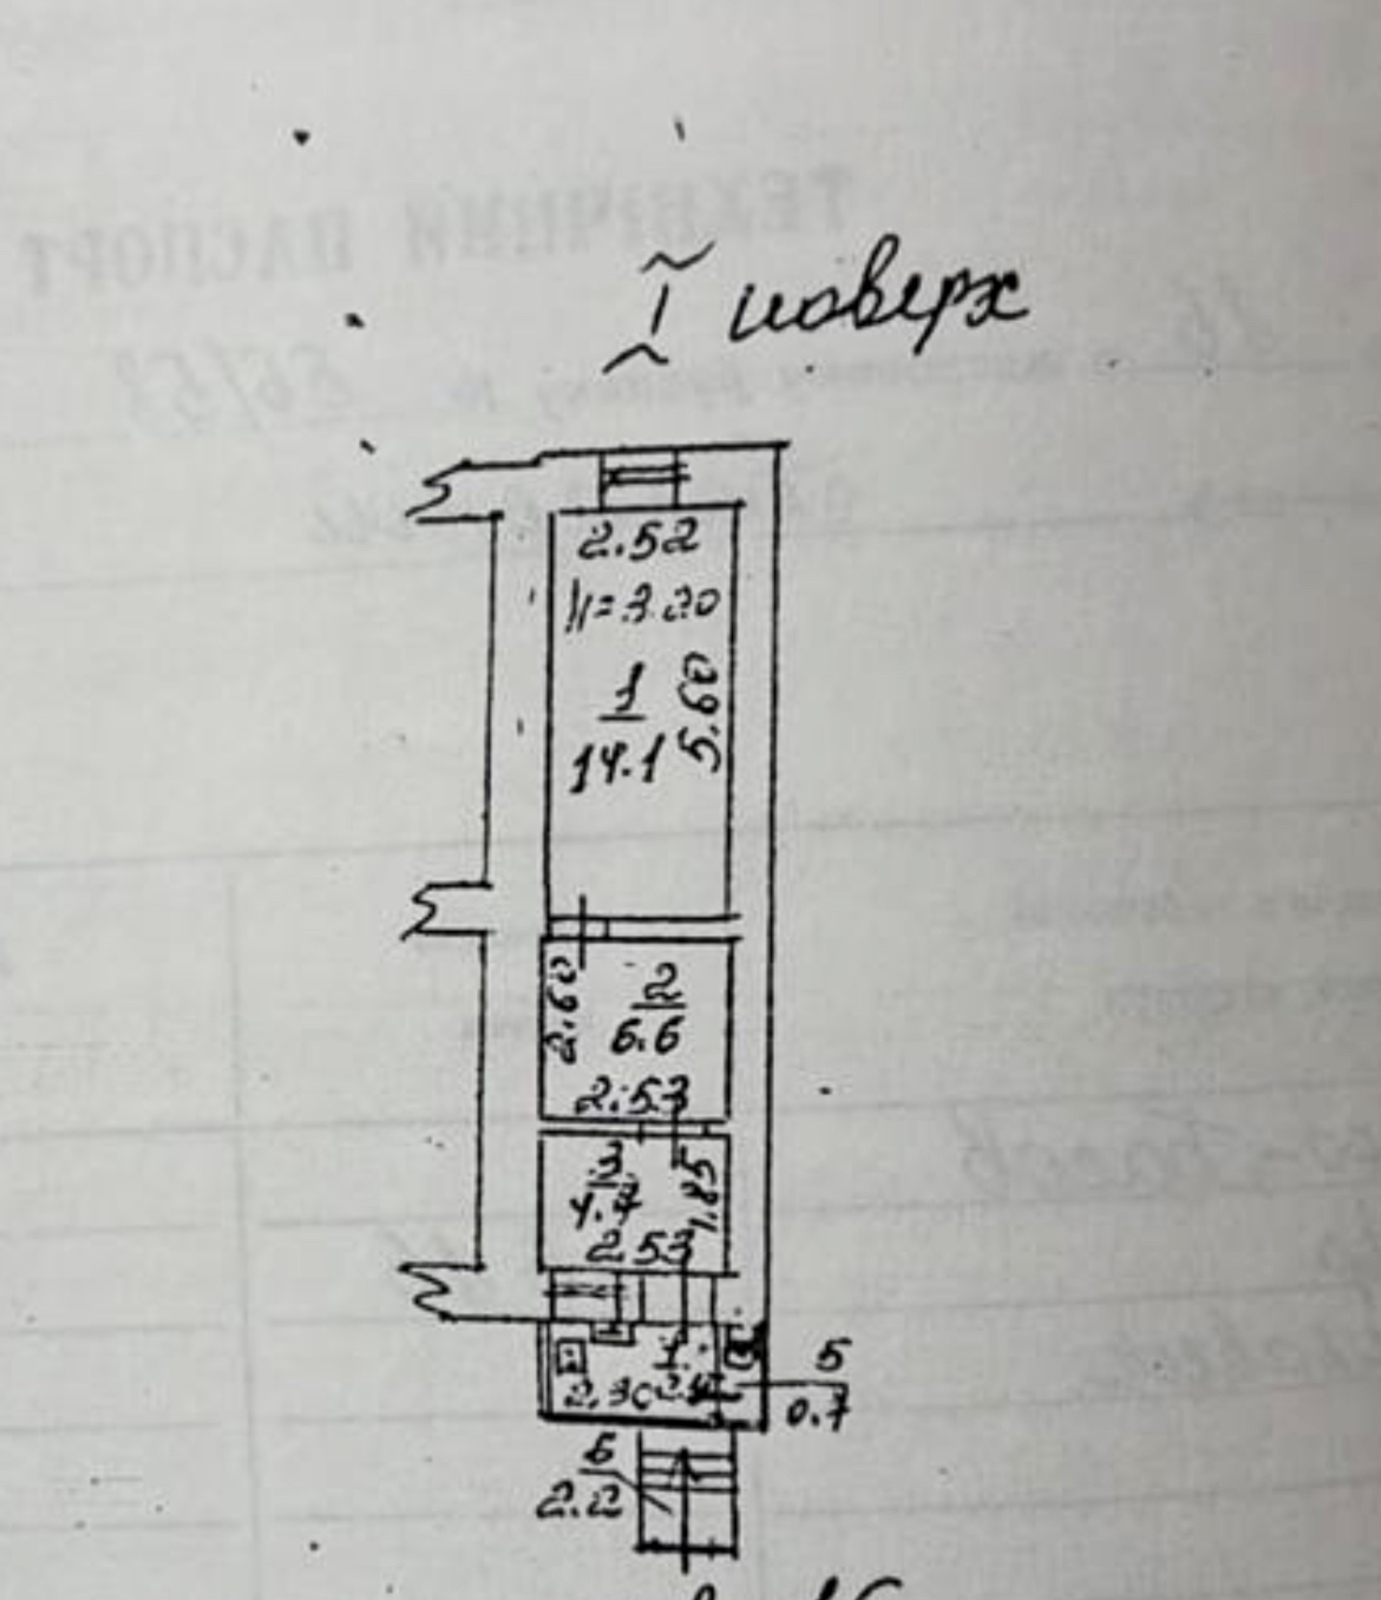 I поверх
2.52
H=3.20
1
14.1
5.60
2.60
2
6.6
2.53
3
4.7
1.85
2.53
4
2.30
5
0.7
6
2.2